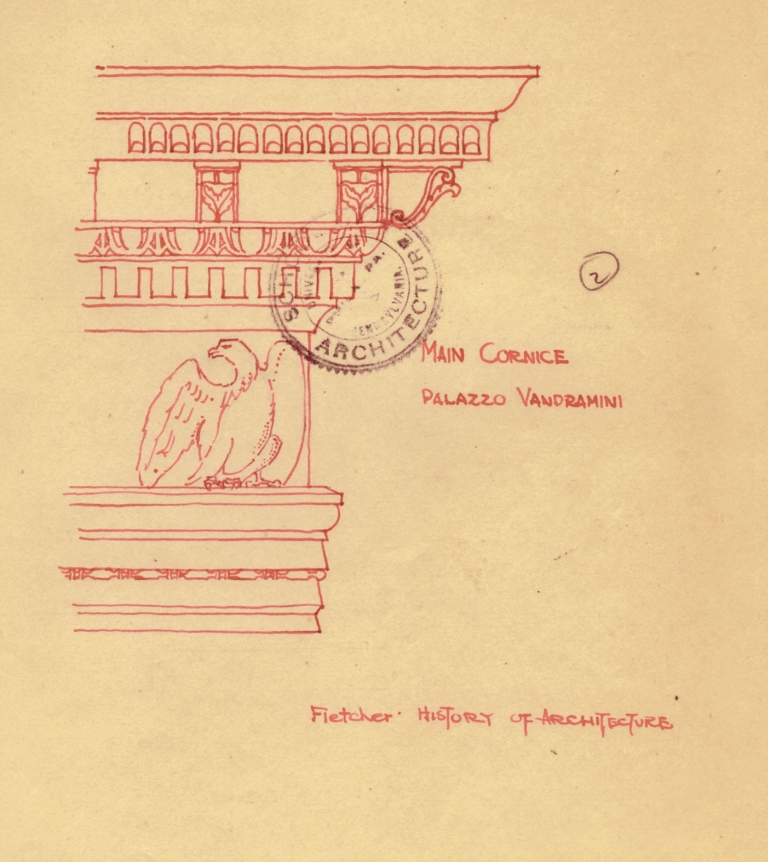 2
SCHO
ARCHITECTURE
UNIV.
PA.
PENNSYLVANIA.
MAIN CORNICE
PALAZZO VANDRAMINI
Fletcher · HISTORY OF ARCHITECTURE